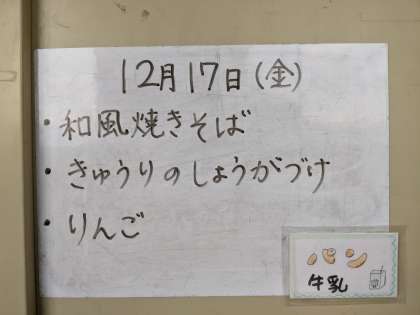 12月17日(金)
・和風焼きそば
・きゅうりのしょうがづけ
・りんご
パン
牛乳